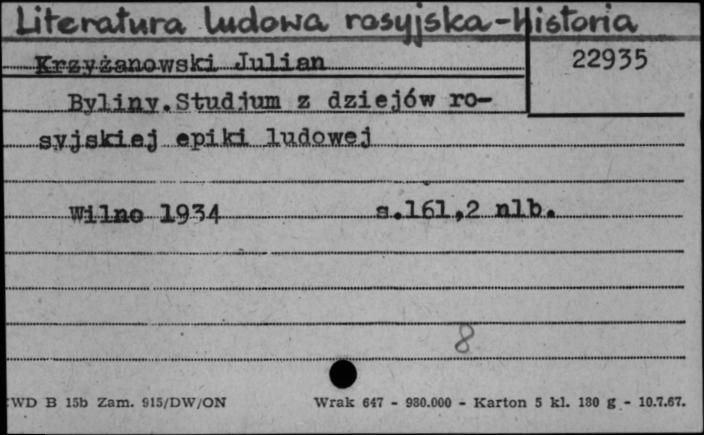 Literatura ludowa rosyjska-Historia
Krzyżanowski Julian
22935
Byliny.Studjum z dziejów ro-
syjskiej epiki ludowej
Wilno 1934 s.161,2 nlb.
8
WD B 15b Zam. 915/DW/ON Wrak 647 - 980.000 - Karton 5 kl. 180 g - 10.7.67.